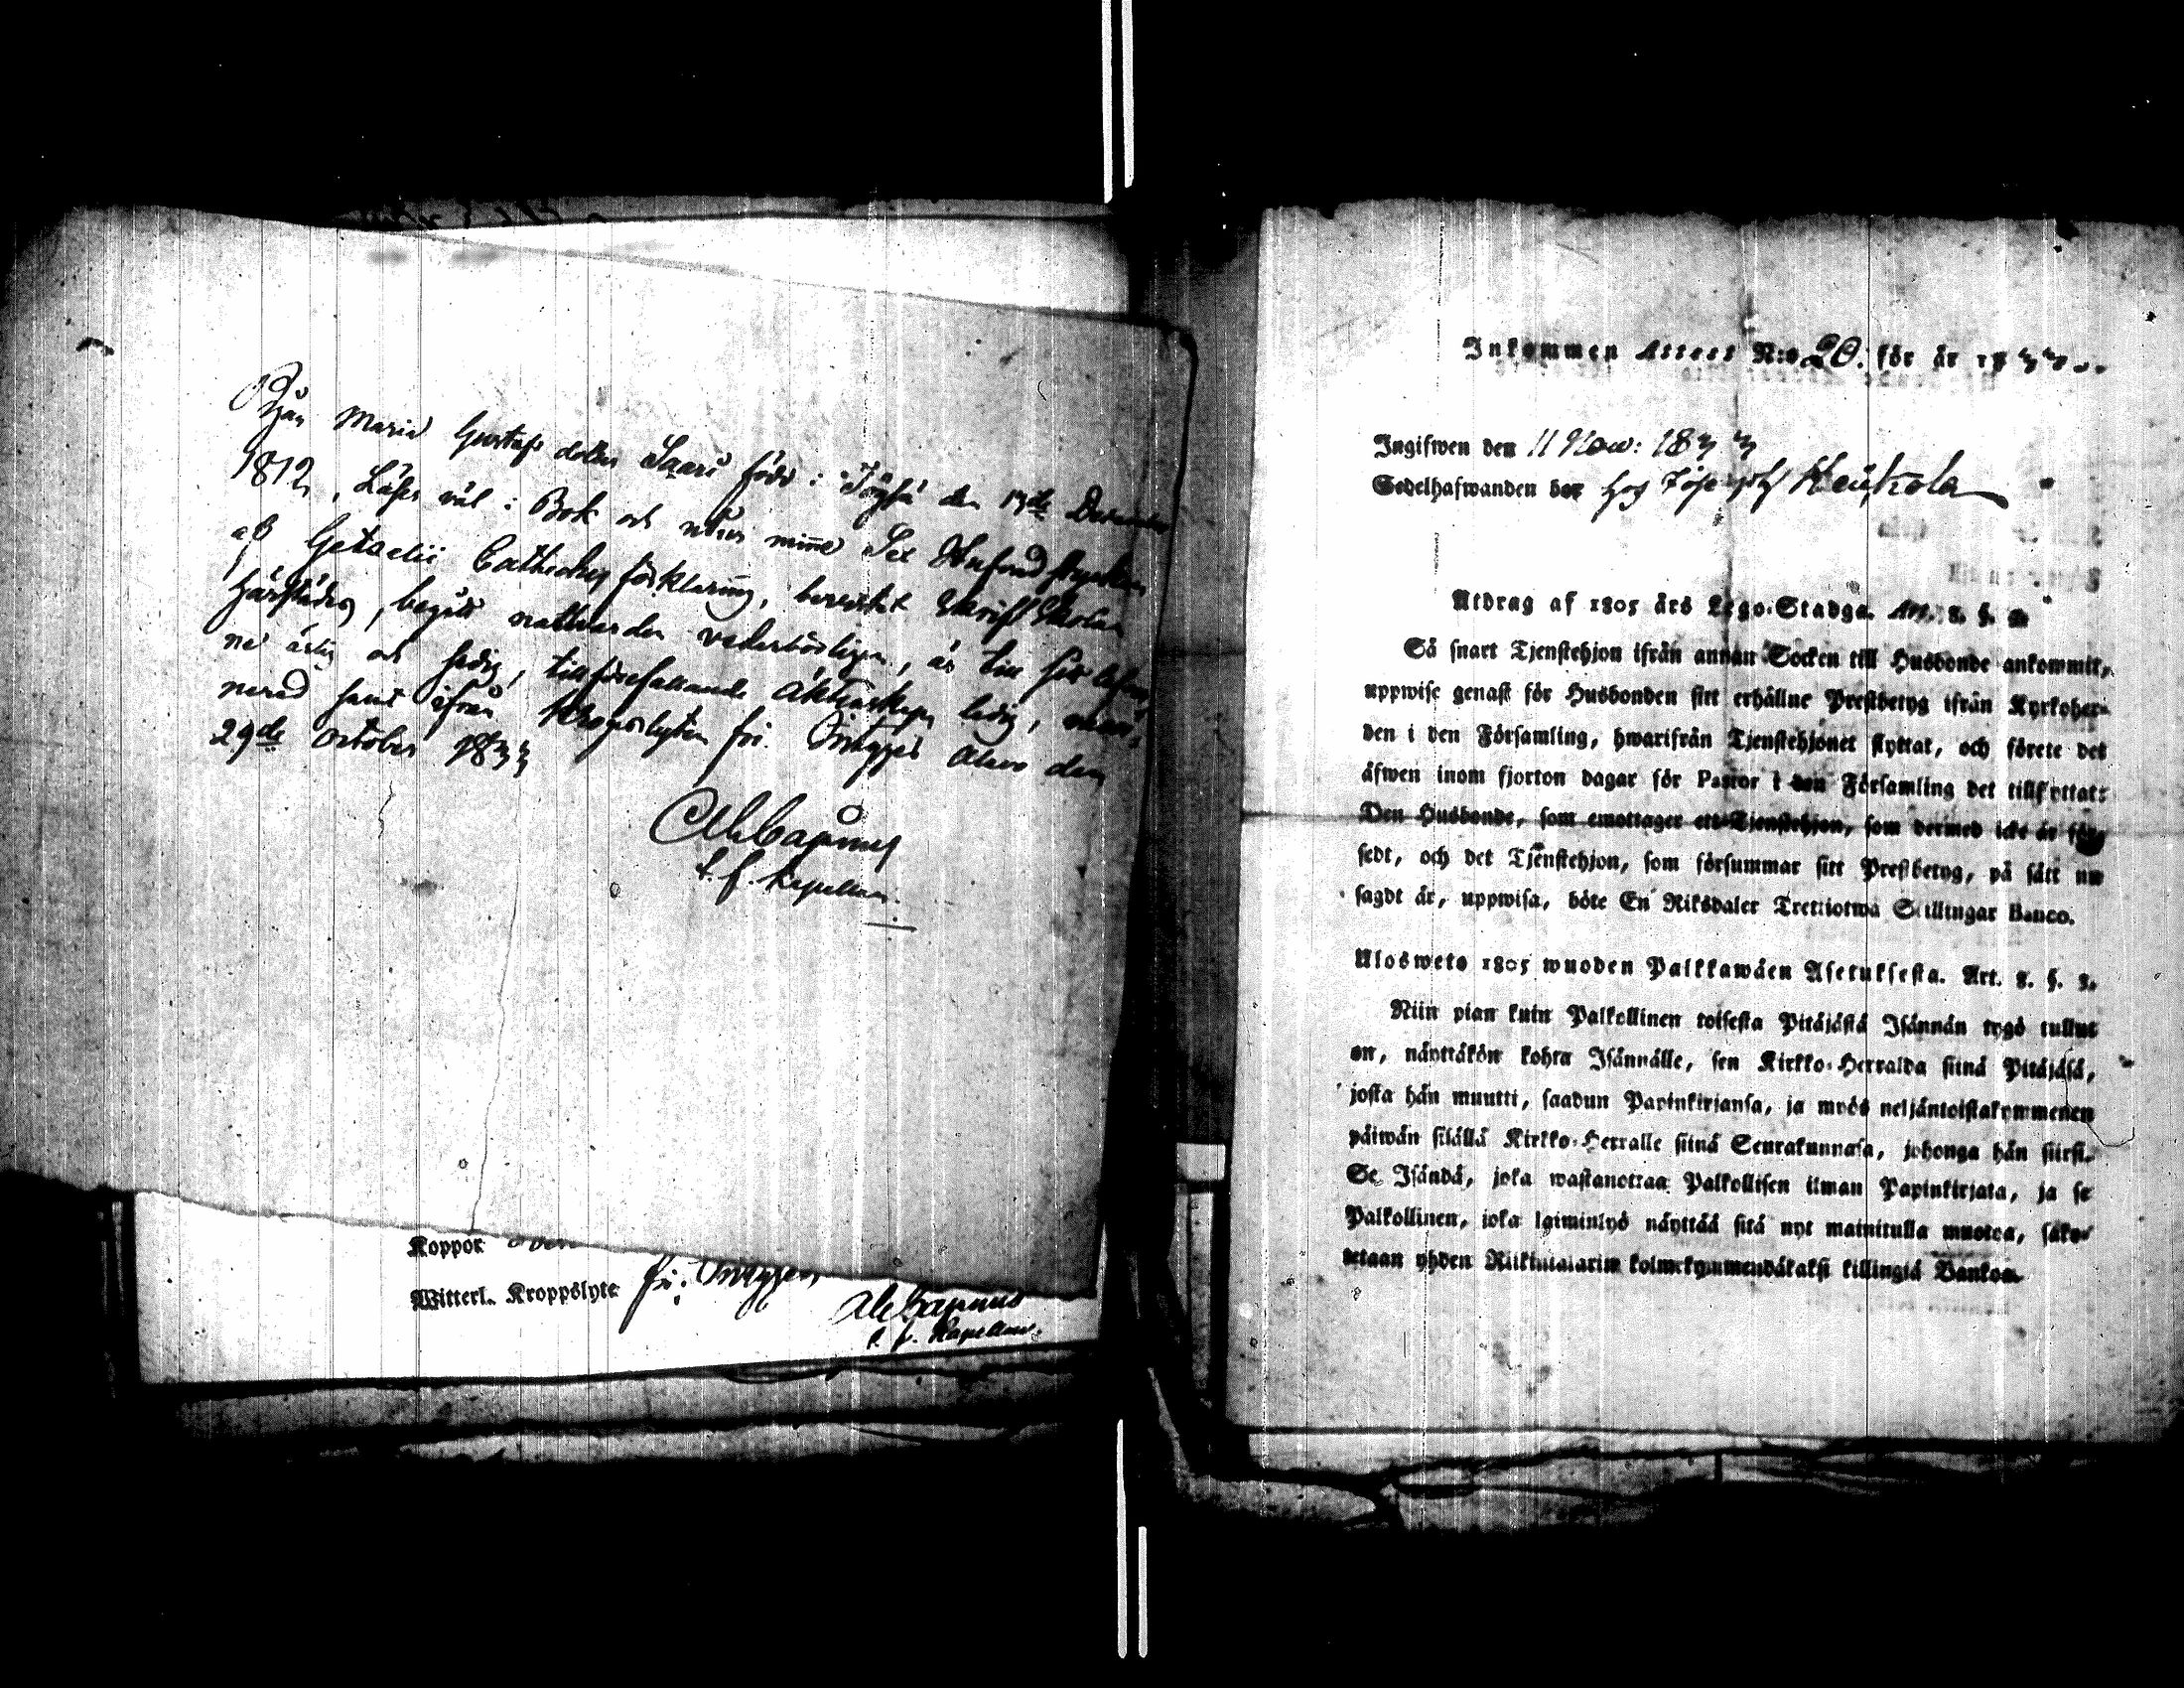 Pigan Maria Gustafs dotter Saari född i Töysä den 17de December
1812, Läser väl i Bok och utur minne Sex Hufvudstycken
af Getaelii Catheches förklaring, bevistat Skrift Skolan
härstädes, begått nattvarden vederbörligen, är till sitt lefver,
ne ärlig och sedig, till förefallande Äktenskap ledig, vacci,
nerad samt ifrån Kroppslyten fri. Intygas Alavo den
29de October 1833
Kapellan.
Koppor
Witterl. Kroppslyte fri. Intygas
Kapellan.
Inkommen Attest N:o 20. för år 1833.
Ingifwen den 11 Nov: 1833
Sedelhafwanden bor hos
Utdrag af 1805 års Lego-Stadga. Art. 8. §.
Så snart Tjenstehjon ifrån annan Socken till Husbonde ankommit,
uppwise genast för Husbonden sitt erhållne Prestbetyg ifrån Kyrkoher-
den i den Församling, hwarifrån Tjenstehjonet flyttat, och förete det
äfwen inom fjorton dagar för Pastor i den Församling det tillflyttat:
Den Husbonde, som emottager ett Tjenstehjon, som dermed icke är för-
sedt, och det Tjenstehjon, som försummar sitt Prestbetyg, på sätt nu
sagdt är, uppwisa, böte En Riksdaler Trettiotwå Skillingar Banco.
Ulosweto 1805 wuoden Palkkawäen Asetuksesta. Art. 8. §. 3.
Niin pian kuin Palkollinen toisesta Pitäjästä Isännän tygö tullut
on, näyttäkön kohta Isännälle, sen Kirkko-Herralda siinä Pitäjäsä,
josta hän muutti, saadun Papinkirjansa, ja myös neljäntoistakymmenen
päiwän sisällä Kirkko-Herralle siinä Seurakunnasa, johonga hän siirsi.
Se Isändä, joka wastanottaa Palkollisen ilman Papinkirjata, ja se
Palkollinen, joka laiminlyö näyttää sitä nyt mainitulla muotoa, sako-
tetaan yhden Riikintalarin kolmekymmendäkaksi killingiä Bankoa.